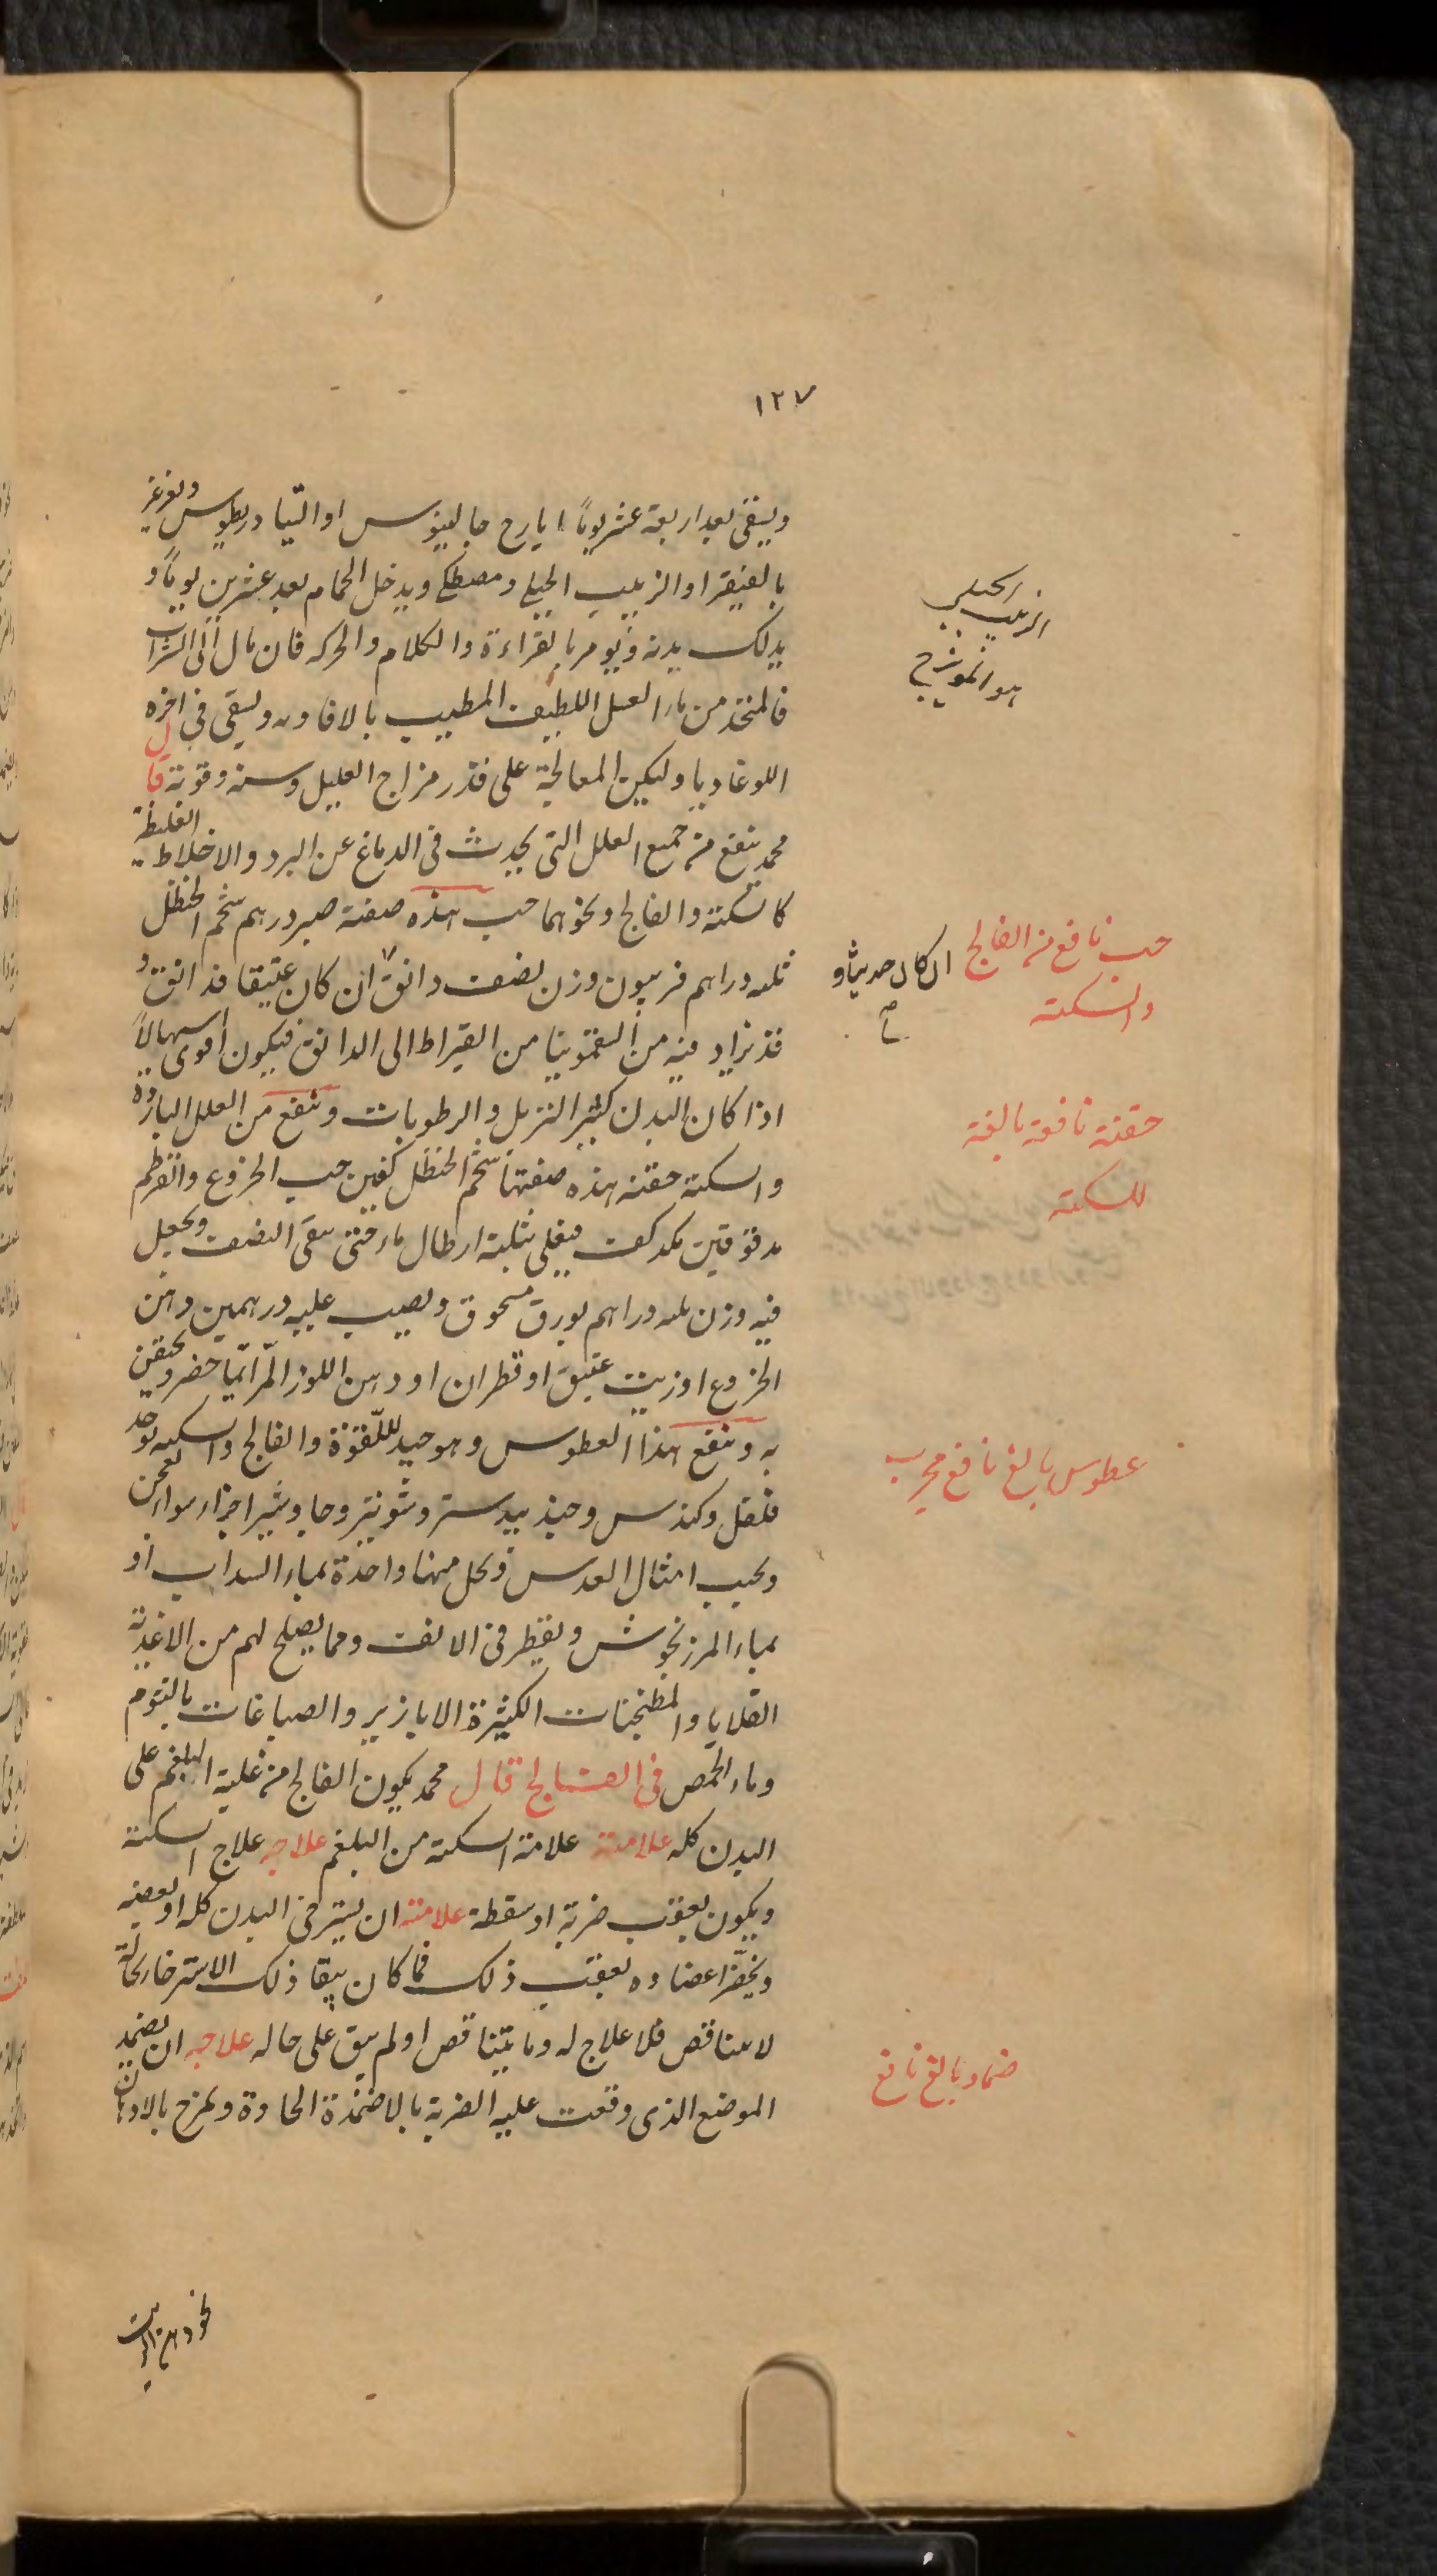 ١٢٧
ويسقى بعد اربعة عشر يوماً ايارج جالينوس او التيادريطوس ويغرغر
بالفيقرا والزبيب الجبلي ومصطكى ويدخل الحمام بعد عشرين يوماً و
يدلك بدنه ويومر بالقراءة والكلام والحركه فان مال الى الشراب
فالمتخذ من ماء العسل اللطيف المطيب بالافاويه ويسقى في اخره
اللوغاديا وليكن المعالجة على قدر مزاج العليل وسنه وقوته قال
محمد ينفع من جميع العلل التي يحدث في الدماغ عن البرد والاخلاط الغليظة
كالسكتة والفالج ونحوهما حب هذه صفته صبر درهم شحم الحنظل
ثلثه دراهم فربيون وزن نصف دانق ان كان عتيقا فدانق و
قد نزاد فيه من السقمونيا من القيراط الى الدانق فيكون اقوى اسهالاً
اذا كان البدن كثير النزل والرطوبات وينفع من العلل الباردة
والسكتة حقنه هذه صفتها شحم الحنظل كفين حب الخروع والقرطم
مدقوقين مكد كف فيغلى بثلثة ارطال ماء حتى يبقى النصف ويجعل
فيه وزن ثلثه دراهم بورق مسحوق ويصب عليه درهمين دهن
الخروع او زيت عتيق او قطران او دهن اللوز المر ايما حضر ويحقن
به وينفع هذا العطوس وهو جيد للقوة والفالج والسكته يوخذ
فلفل وكندس وجندبيدستر وشونيز وجاوشير اجزاء سواء يعجن
ويحبب امثال العدس ويحل منها واحدة بماء السداب او
بماء المرزنجوش ويقطر في الانف ومما يصلح لهم من الاغذية
القلايا والمطنجنات الكثيرة الابازير والصباغات بالثوم
وماء الحمص في الفالج قال محمد يكون الفالج من غلبة البلغم على
البدن كله علامته علامة السكته من البلغم علاجه علاج السكتة
ويكون بعقب ضربة او سقطة علامته ان يسترخى البدن كله او بعضه
ويخدر اعضاوه بعقب ذلك فما كان يبقا ذلك الاسترخا بحالة
لا يتناقص فلا علاج له وما يتناقص او لم يبق على حاله علاجه ان يضمد
الموضع الذى وقعت عليه الضربة بالاضمدة الحادة ويمرخ بالادهان
الزبيب الجبلي
هو المويزج
حب نافع من الفالج
والسكته
ان كان حديثا و
صح
حقنة نافعة بالغة
للسكته
عطوس بالغ نافع مجرب
ضماد بالغ نافع